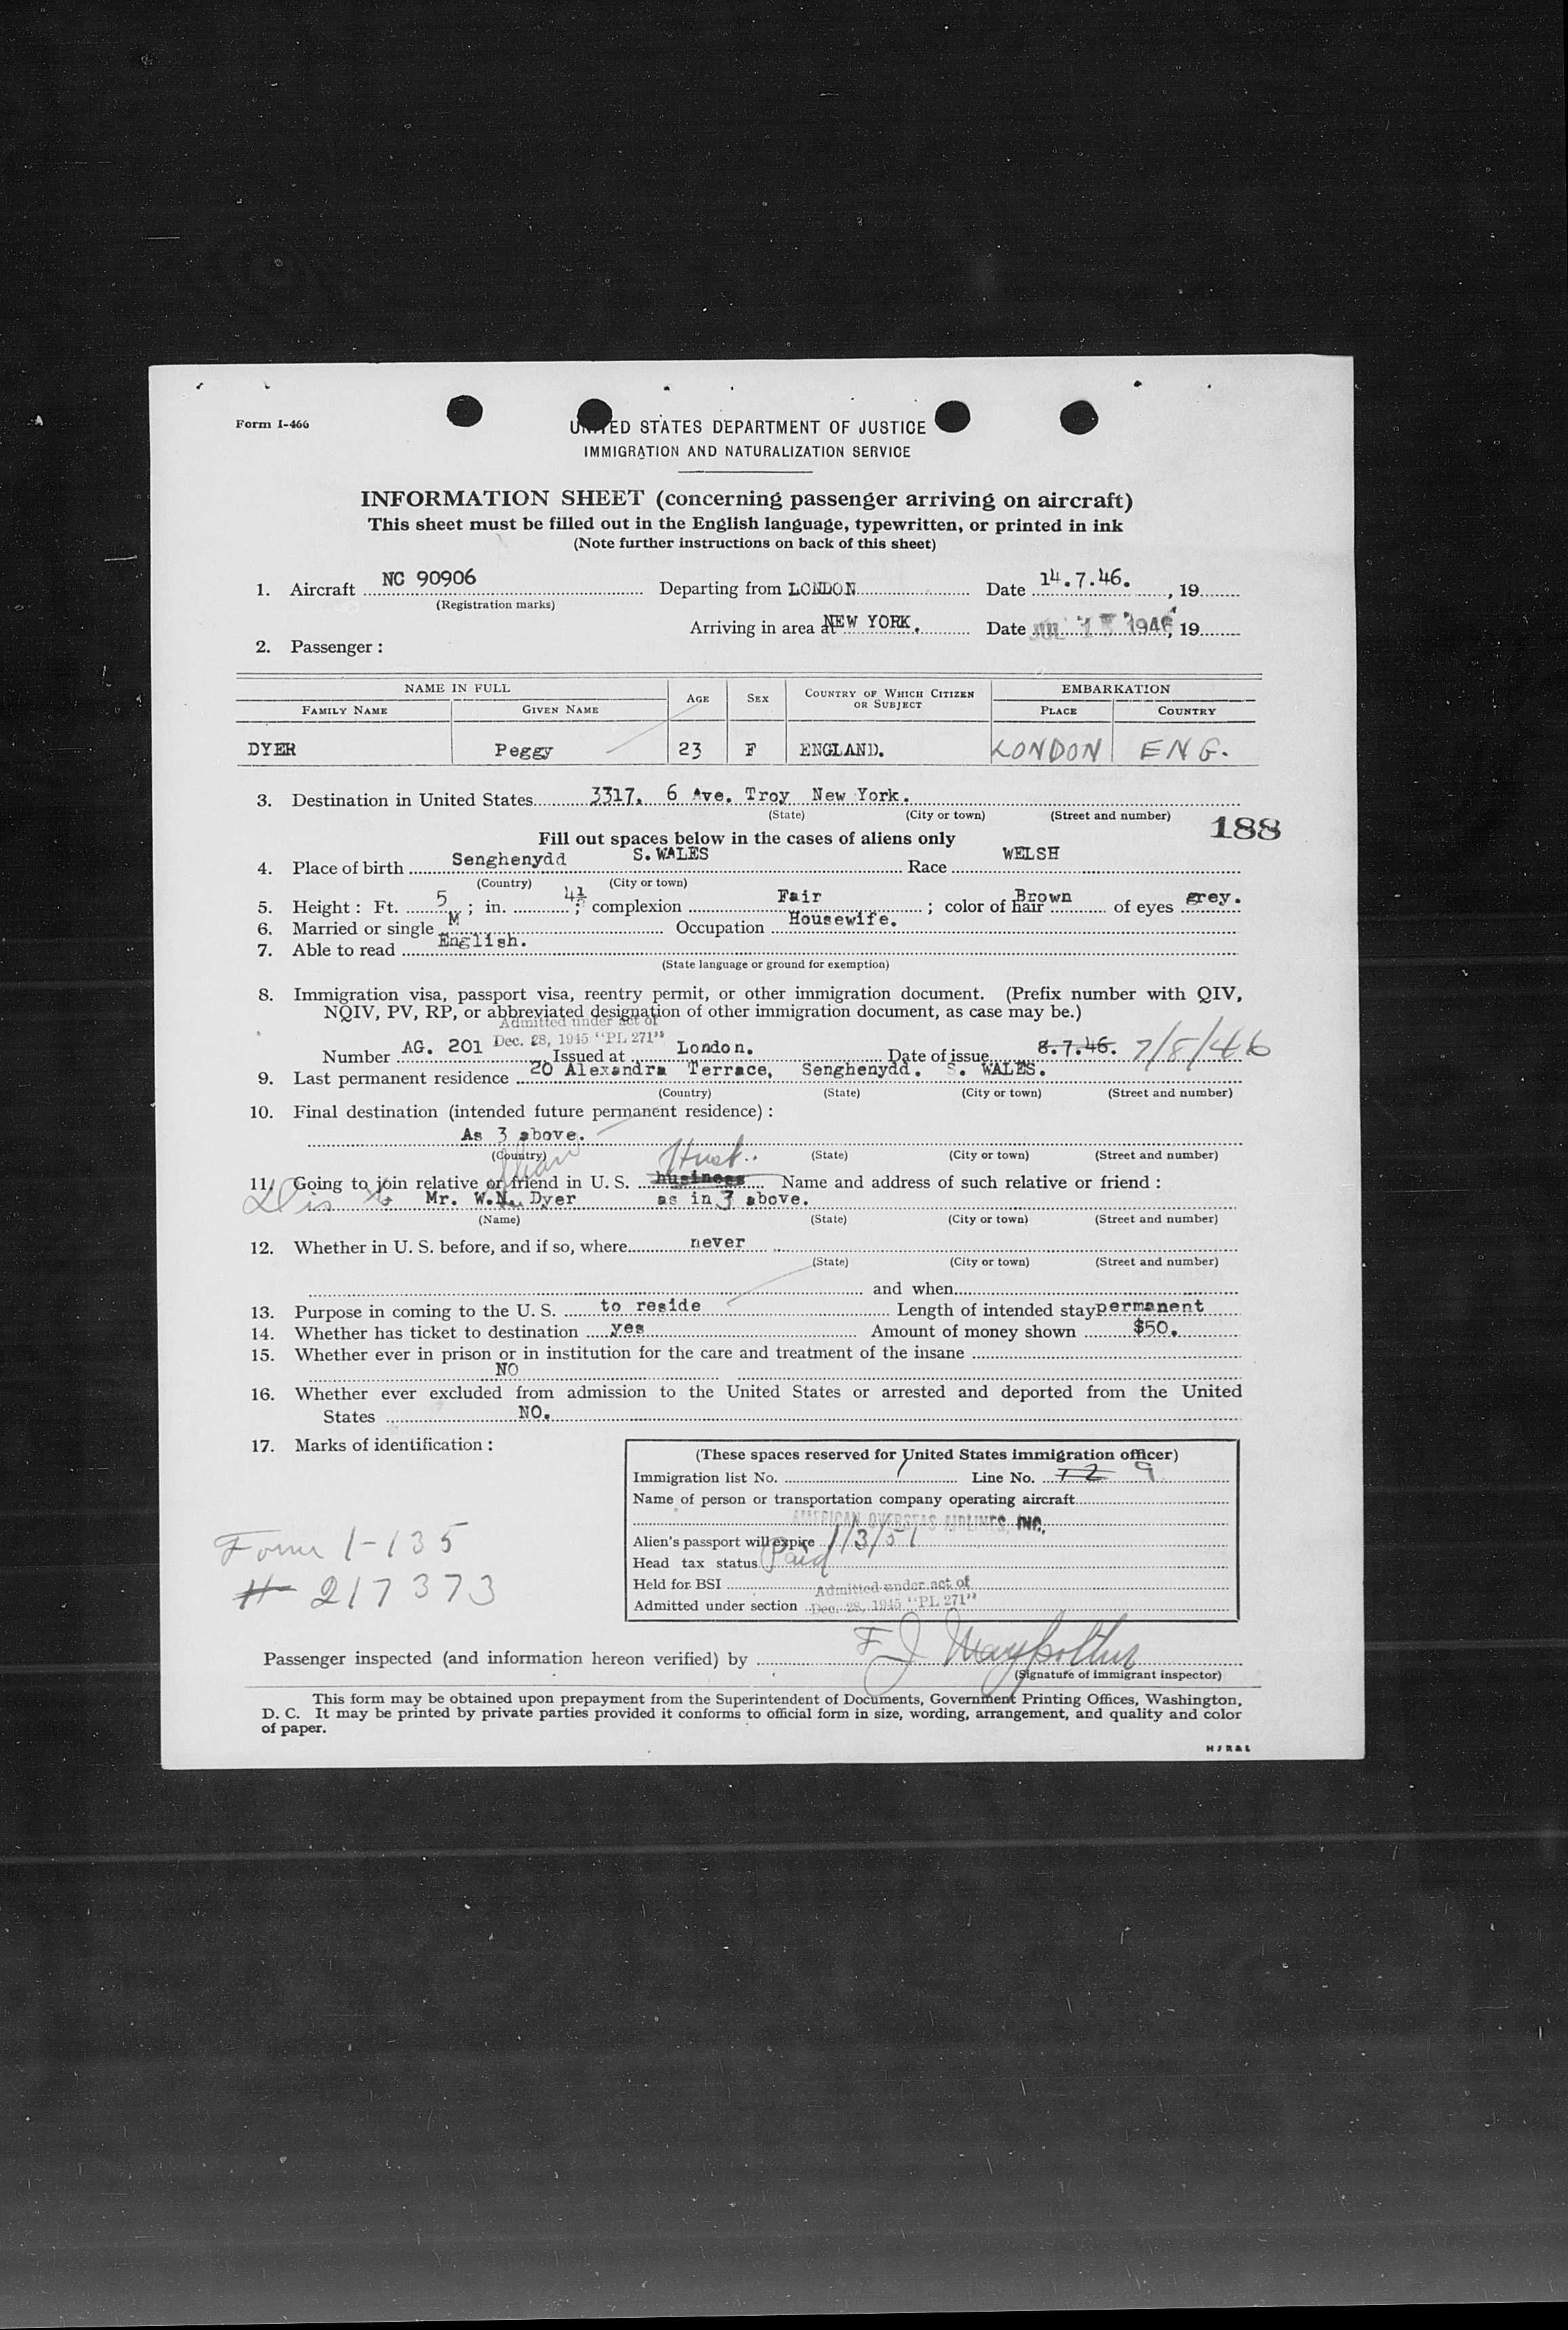 Form I-466
UNITED STATES DEPARTMENT OF JUSTICE
IMMIGRATION AND NATURALIZATION SERVICE
INFORMATION SHEET (concerning passenger arriving on aircraft)
This sheet must be filled out in the English language, typewritten, or printed in ink
(Note further instructions on back of this sheet)
1. Aircraft NC 90906 Departing from LONDON Date 14.7.46. , 19
(Registration marks)
Arriving in area at NEW YORK. Date JUL 1946, 19
2. Passenger :
NAME IN FULL AGE SEX COUNTRY OF WHICH CITIZEN OR SUBJECT EMBARKATION
FAMILY NAME GIVEN NAME PLACE COUNTRY
DYER Peggy 23 F ENGLAND. LONDON ENG.
3. Destination in United States 3317. 6 Ave. Troy New York.
(State) (City or town) (Street and number)
188
Fill out spaces below in the cases of aliens only
4. Place of birth Senghenydd S. WALES Race WELSH
(Country) (City or town)
5. Height : Ft. 5 ; in. 4½ ; complexion Fair ; color of hair Brown of eyes grey.
6. Married or single M Occupation Housewife.
7. Able to read English.
(State language or ground for exemption)
8. Immigration visa, passport visa, reentry permit, or other immigration document. (Prefix number with QIV,
NQIV, PV, RP, or abbreviated designation of other immigration document, as case may be.)
Admitted under act of
Dec. 28, 1945 "PL 271"
Number AG. 201 Issued at London. Date of issue 8.7.46. 7/8/46
9. Last permanent residence 20 Alexandra Terrace, Senghenydd. S. WALES.
(Country) (State) (City or town) (Street and number)
10. Final destination (intended future permanent residence) :
As 3 above.
(Country) (State) (City or town) (Street and number)
Husb.
11. Going to join relative or friend in U. S. business Name and address of such relative or friend :
Dis to Mr. W.N. Dyer as in 3 above.
(Name) (State) (City or town) (Street and number)
12. Whether in U. S. before, and if so, where never
(State) (City or town) (Street and number)
and when
13. Purpose in coming to the U. S. to reside Length of intended stay permanent
14. Whether has ticket to destination yes Amount of money shown $50.
15. Whether ever in prison or in institution for the care and treatment of the insane
NO
16. Whether ever excluded from admission to the United States or arrested and deported from the United
States NO.
17. Marks of identification :
(These spaces reserved for United States immigration officer)
Immigration list No. 1 Line No. 12 9
Name of person or transportation company operating aircraft
AMERICAN OVERSEAS AIRLINES, INC.
Alien's passport will expire 1/3/51
Head tax status Paid
Held for BSI
Admitted under section Admitted under act of Dec. 28, 1945 "PL 271"
Form I-135
# 217373
Passenger inspected (and information hereon verified) by F J
(Signature of immigrant inspector)
This form may be obtained upon prepayment from the Superintendent of Documents, Government Printing Offices, Washington,
D. C. It may be printed by private parties provided it conforms to official form in size, wording, arrangement, and quality and color
of paper.
HJR&L